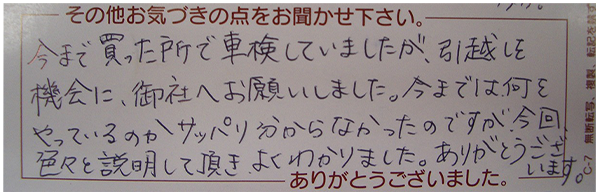 その他お気づきの点をお聞かせ下さい。
今まで買った所で車検していましたが、引越しを
機会に、御社へお願いしました。今までは何を
やっているのかサッパリ分からなかったのですが、今回
色々と説明して頂き、よくわかりました。ありがとうござ
います。
ありがとうございました。
C-7 無断転写、複製、転記を